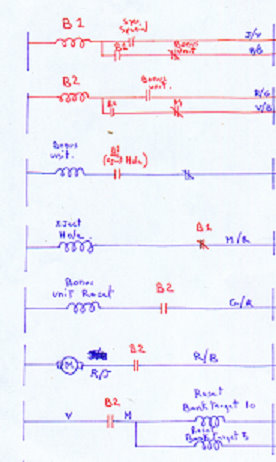 B1
J/V
B2
Bonus
B/B
unit
B2
Bonus
unit
R/G
M
V/B
Bonus
unit.
B1
(Eject Hole)
Eject
Hole
B1
M/R
Bonus
Unit Reset
B2
B2
R/B
M
R/J
B2
Reset
Bank Target 10
V
M
Reset
Bank Target 5